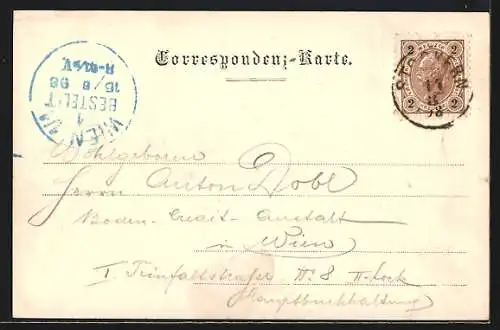 Correspondenz-Karte.
WIEN 1/1
1
BESTELLT
15/8 98
2 2
2 2
98
Wohlgeboren
Herrn Anton Dobl
Boden-Credit-Anstalt
in Wien
I. Teinfaltstrasse No 8 II. Stock
Hauptbuchhaltung